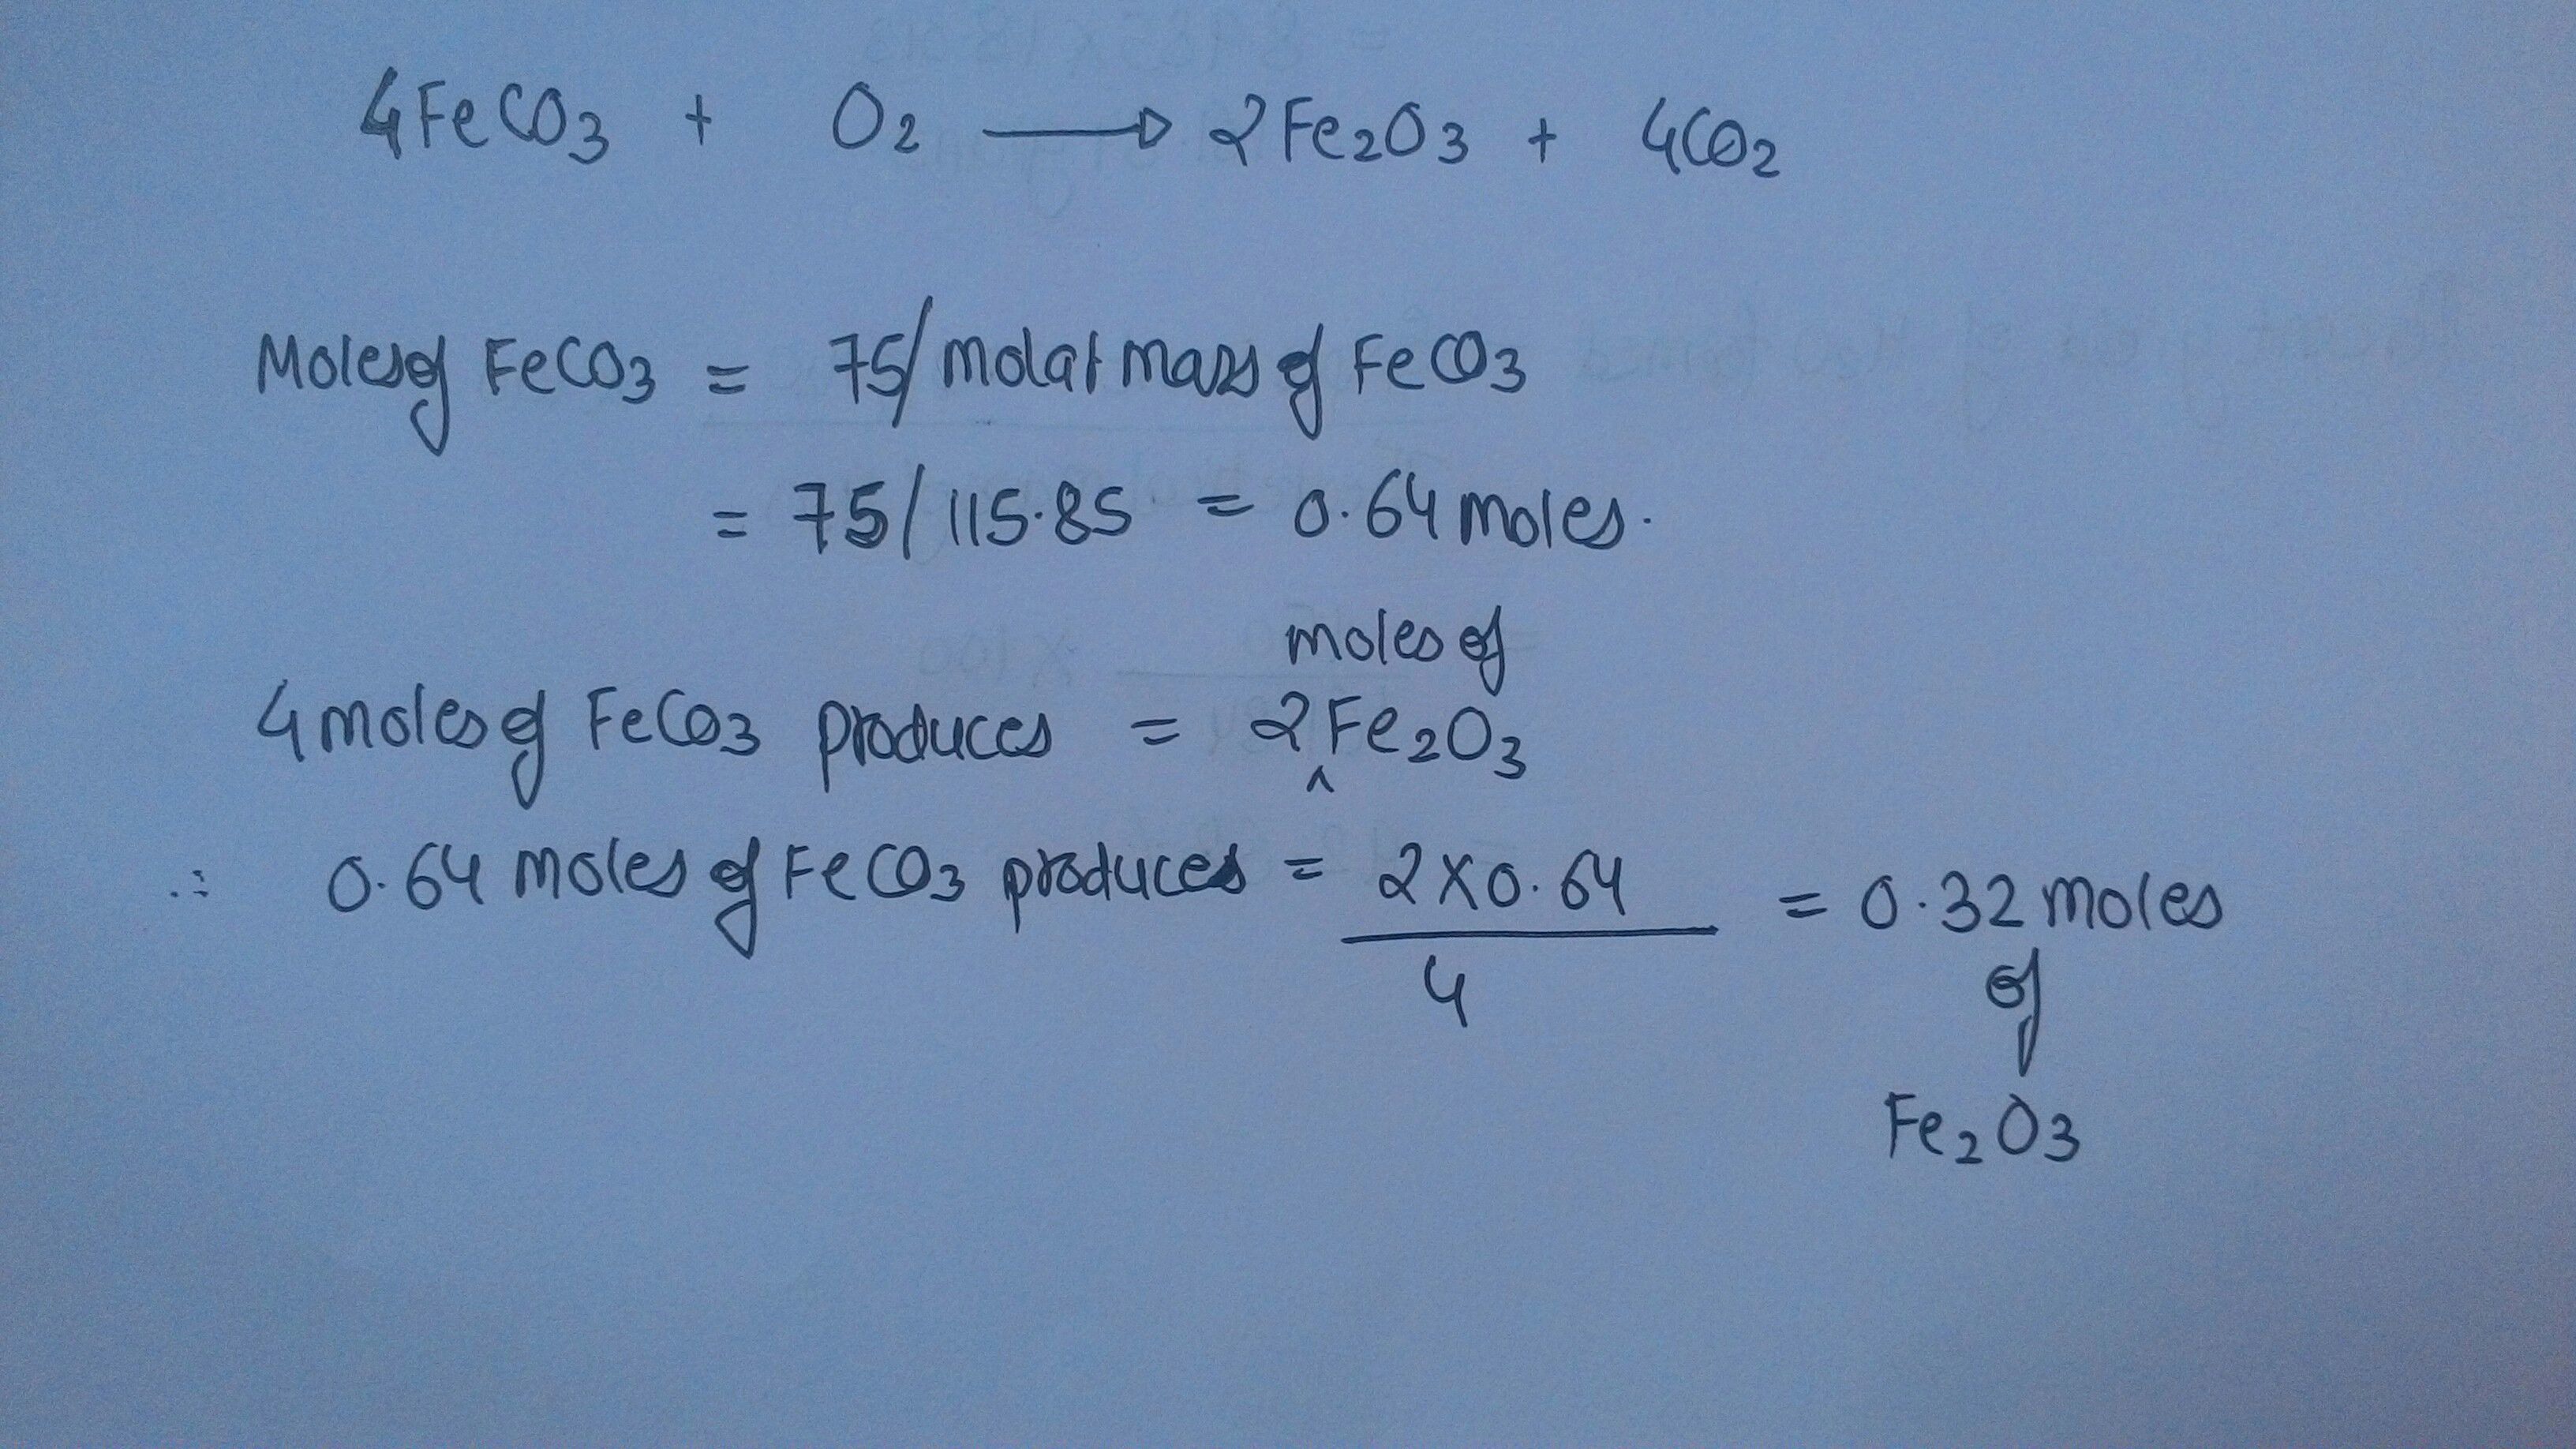 4FeCO3 + O2 → 2Fe2O3 + 4CO2
Moles of FeCO3 = 75/molar mass of FeCO3
= 75/115.85 = 0.64 moles.
moles of
4 moles of FeCO3 produces = 2 ^ Fe2O3
∴ 0.64 moles of FeCO3 produces = 2 x 0.64 / 4 = 0.32 moles
of
Fe2O3